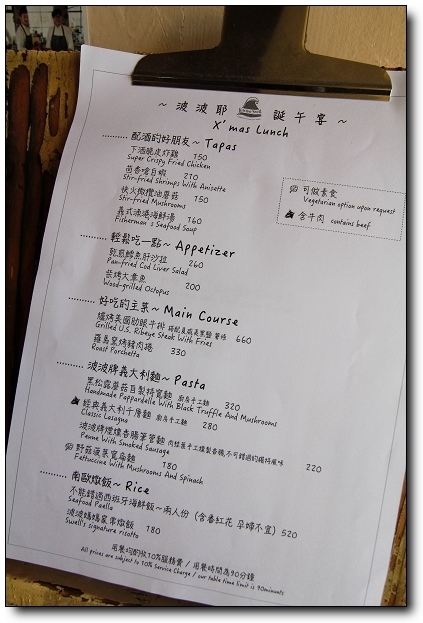 ~ 波波耶 誕午宴 ~
X'mas Lunch
配酒的好朋友~ Tapas
下酒脆皮炸雞 150
Super Crispy Fried Chicken
茴香嗆白蝦 210
Stir-fried Shrimps With Anisette
快火橄欖油蘑菇 150
Stir-fried Mushrooms
義式漁港海鮮湯 160
Fisherman's Seafood Soup
可做素食
Vegetarian option upon request
含牛肉 contains beef
輕鬆吃一點~ Appetizer
乾煎鱈魚肝沙拉 260
Pan-fried Cod Liver Salad
柴烤大章魚 200
Wood-grilled Octopus
好吃的主菜~ Main Course
爐烤美國肋眼牛排 660
Grilled U.S. Ribeye Steak With Fries
羅馬窯烤豬肉捲 330
Roast Porchetta
波波牌義大利麵~ Pasta
黑松露蘑菇自製特寬麵 廚房手工麵 320
Handmade Pappardelle With Black Truffle And Mushrooms
經典義大利千層麵 廚房手工麵 280
Classic Lasagna
波波牌煙燻香腸筆管麵 220
Penne With Smoked Sausage
野菇菠菜寬扁麵 180
Fettuccine With Mushrooms And Spinach
南歐燉飯~ Rice
不能錯過西班牙海鮮飯~兩人份 (含番紅花 孕婦不宜) 520
Seafood Paella
波波媽媽家常燉飯 180
Swell's signature risotto
用餐均酌收10%服務費 / 用餐時間為90分鐘
All prices are subject to 10% Service Charge / our table time limit is 90minuets